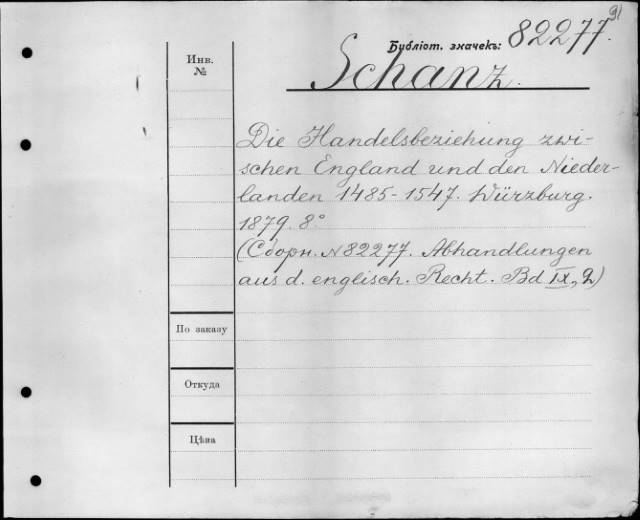 91
Библіот. значекъ: 82277.
Инв.
№
Schanz.
Die Handelsbeziehung zwi-
schen England und den Nieder-
landen 1485-1547. Würzburg.
1879. 8°
(Сборн. № 82277. Abhandlungen
aus d. englisch. Recht. Bd IX, 2)
По заказу
Откуда
Цѣна